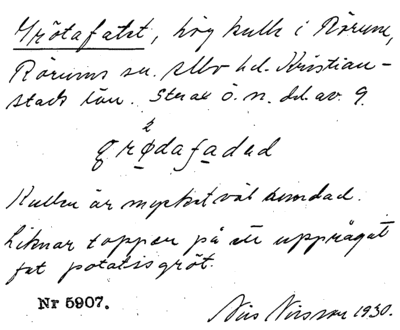 Grötafatet, hög kulle i Rörum,
Rörums sn. Albo hd. Kristian-
stads län. Strax ö. n. del. av 9.
grø̂dafadəd
Kullen är mycket väl rundad.
Liknar toppen på ett upprågat
fat potatisgröt.
Nr 5907.
Nils Nilsson 1930.